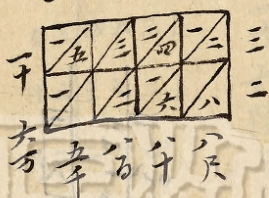 一五 三 二四 一二 三
一十 一 二 一六 八 二
六万 五千 八百 八十 八尺